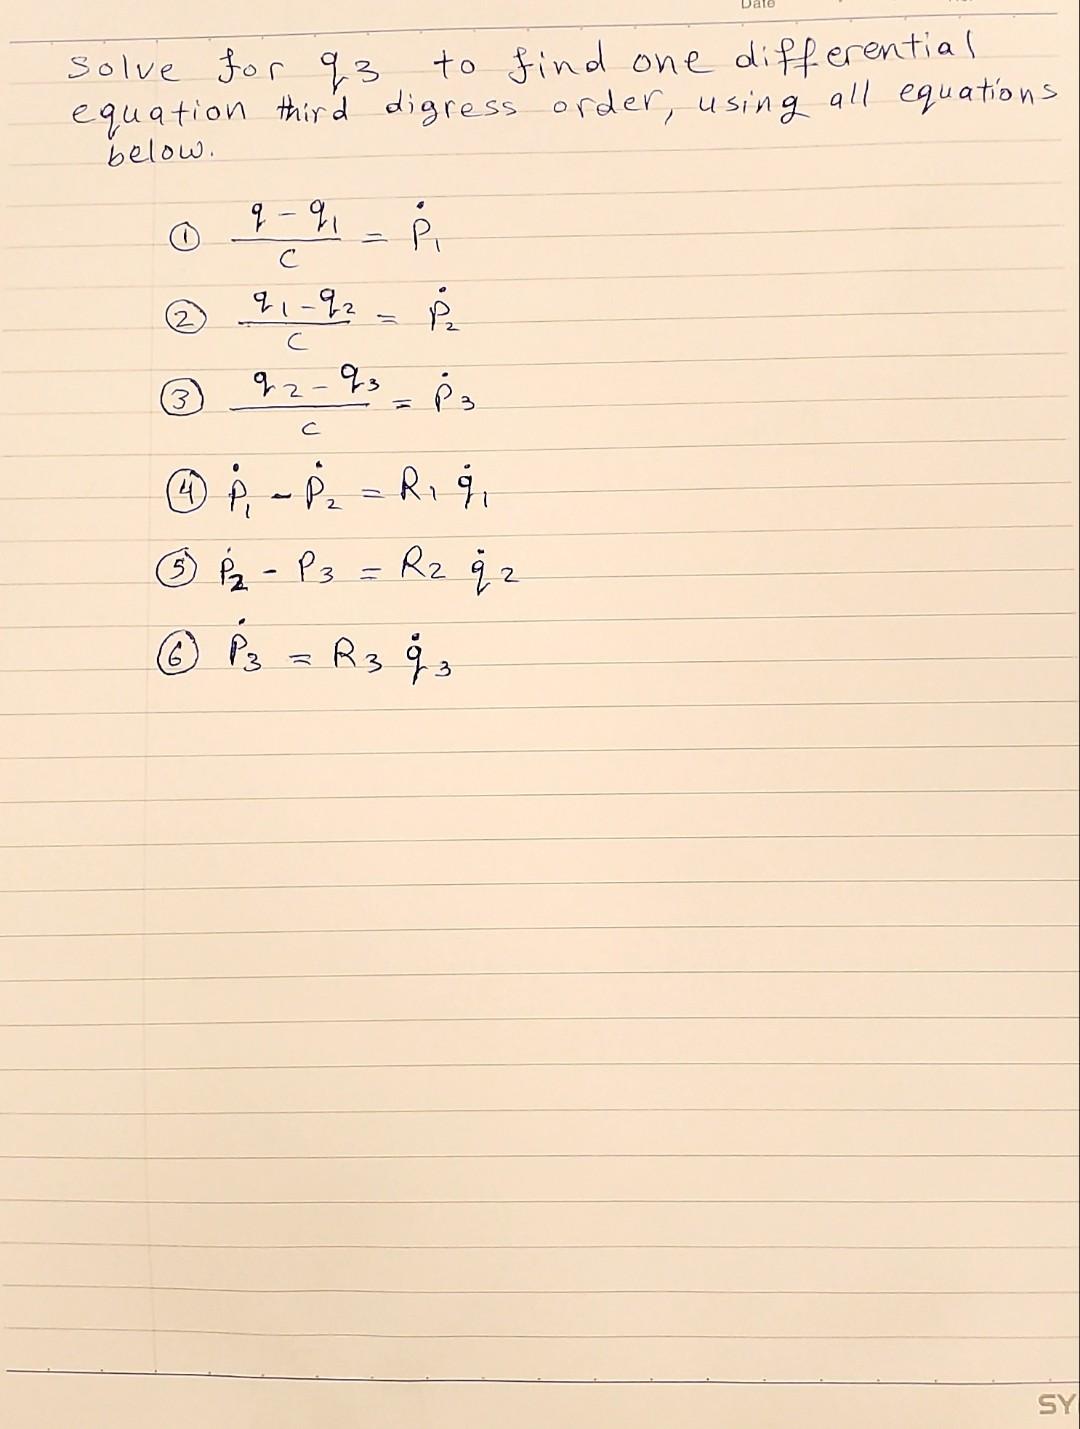 Date
Solve for q3 to find one differential
equation third digress order, using all equations
below.
① (q - q₁)/C = Ṗ₁
② (q₁ - q₂)/C = Ṗ₂
③ (q₂ - q₃)/C = Ṗ₃
④ Ṗ₁ - Ṗ₂ = R₁ q̇₁
⑤ Ṗ₂ - P₃ = R₂ q̇₂
⑥ Ṗ₃ = R₃ q̇₃
SY